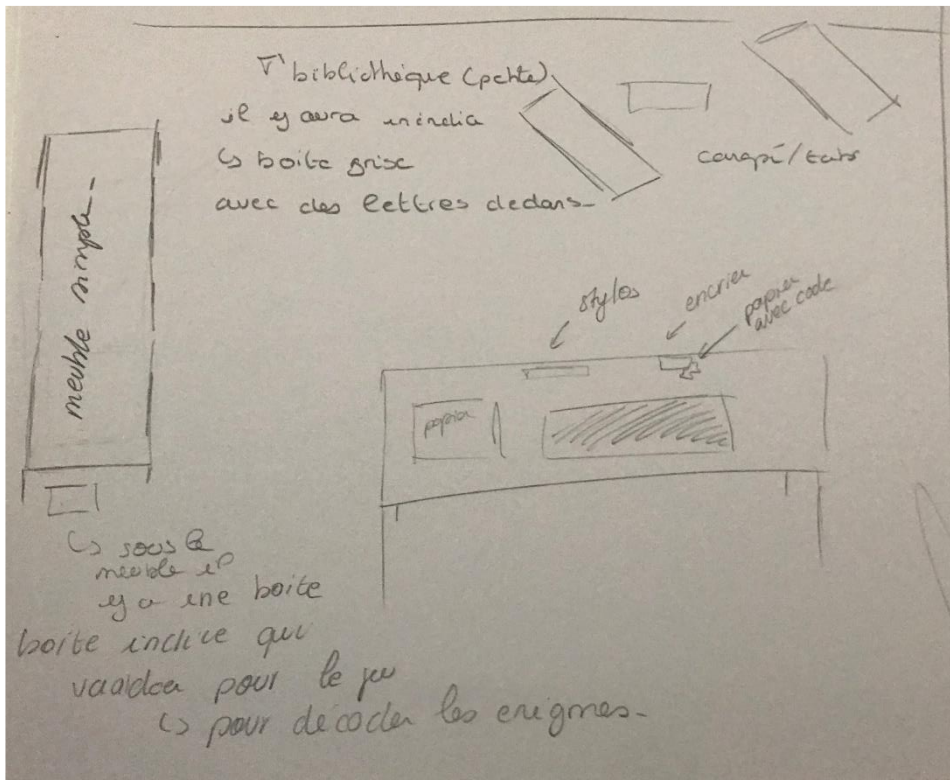 bibliothèque (petite)
il y aura un indice
↳ boite grise
avec des lettres dedans_
canapé/
meuble simple_
stylos
encrier
papier
avec code
papier
↳ sous le
meuble il
y a une boite
boite indice qui
pour le jeu
↳ pour décoder les enigmes_